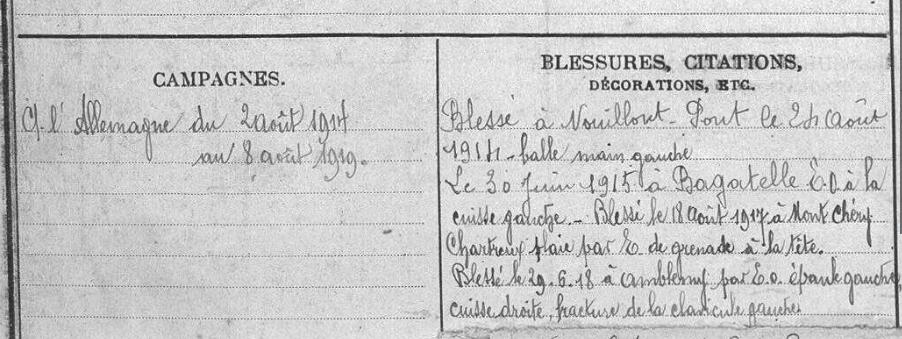 CAMPAGNES.
C/ l'Allemagne du 2 août 1914
au 8 août 1919.
BLESSURES, CITATIONS,
DÉCORATIONS, ETC.
Blessé à Nouillont-Pont le 24 août
1914 - balle main gauche
Le 30 Juin 1915 à Bagatelle E.O. à la
cuisse gauche. - Blessé le 18 août 1917 à Mont Chéry
Chartreux plaie par E. de grenade à la tête.
Blessé le 29.6.18 à par E.o. épaule gauche,
cuisse droite, fracture de la clavicule gauche